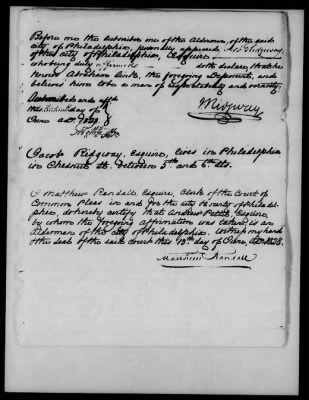 Before me the subscriber one of the Aldermen of the said
city of Philadelphia, personally appeared Jacob Ridgway,
of the city of Philadelphia, Esquire,
who being duly affirmed doth declare, that he
knows Abraham the foregoing Deponent, and
believes him to be a man of respectability and veracity.
Subscribed and affd
this day of
June A.D. 1828
J Ridgway
Jacob Ridgway, Esquire, lives in Philadelphia
in Chesnut St. between 5th and 6th Sts.
I Matthew Randall, Esquire, Clerk of the Court of
Common Pleas in and for the city & county of Philadel-
phia, do hereby certify that Andrew Pettit, Esquire,
by whom the foregoing affirmation was taken, is an
Alderman of the city of Philadelphia. Witness my hand
& the seal of the said court this 13th day of June, A.D. 1828.
Matthew Randall